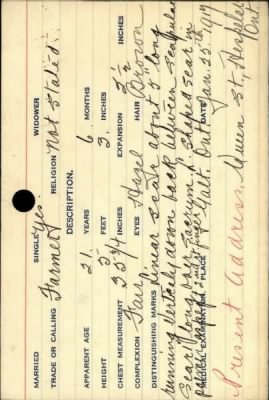 MARRIED SINGLE Yes. WIDOWER
TRADE OR CALLING Farmer RELIGION Not Stated.
DESCRIPTION.
APPARENT AGE 21 YEARS 6 MONTHS
HEIGHT 5 FEET 2 INCHES
CHEST MEASUREMENT 33 3/4 INCHES EXPANSION 2 1/2 INCHES
COMPLEXION Fair EYES Hazel HAIR Brown
DISTINGUISHING MARKS Linear scar about 5" long
running vertically down back between scapulae
Scar along back sacrum. V. shaped scar in
MEDICAL EXAMINATION PLACE Galt, Ont. DATE Jan 25th 1917
Present address, Queen St, Hespeler
Ont.